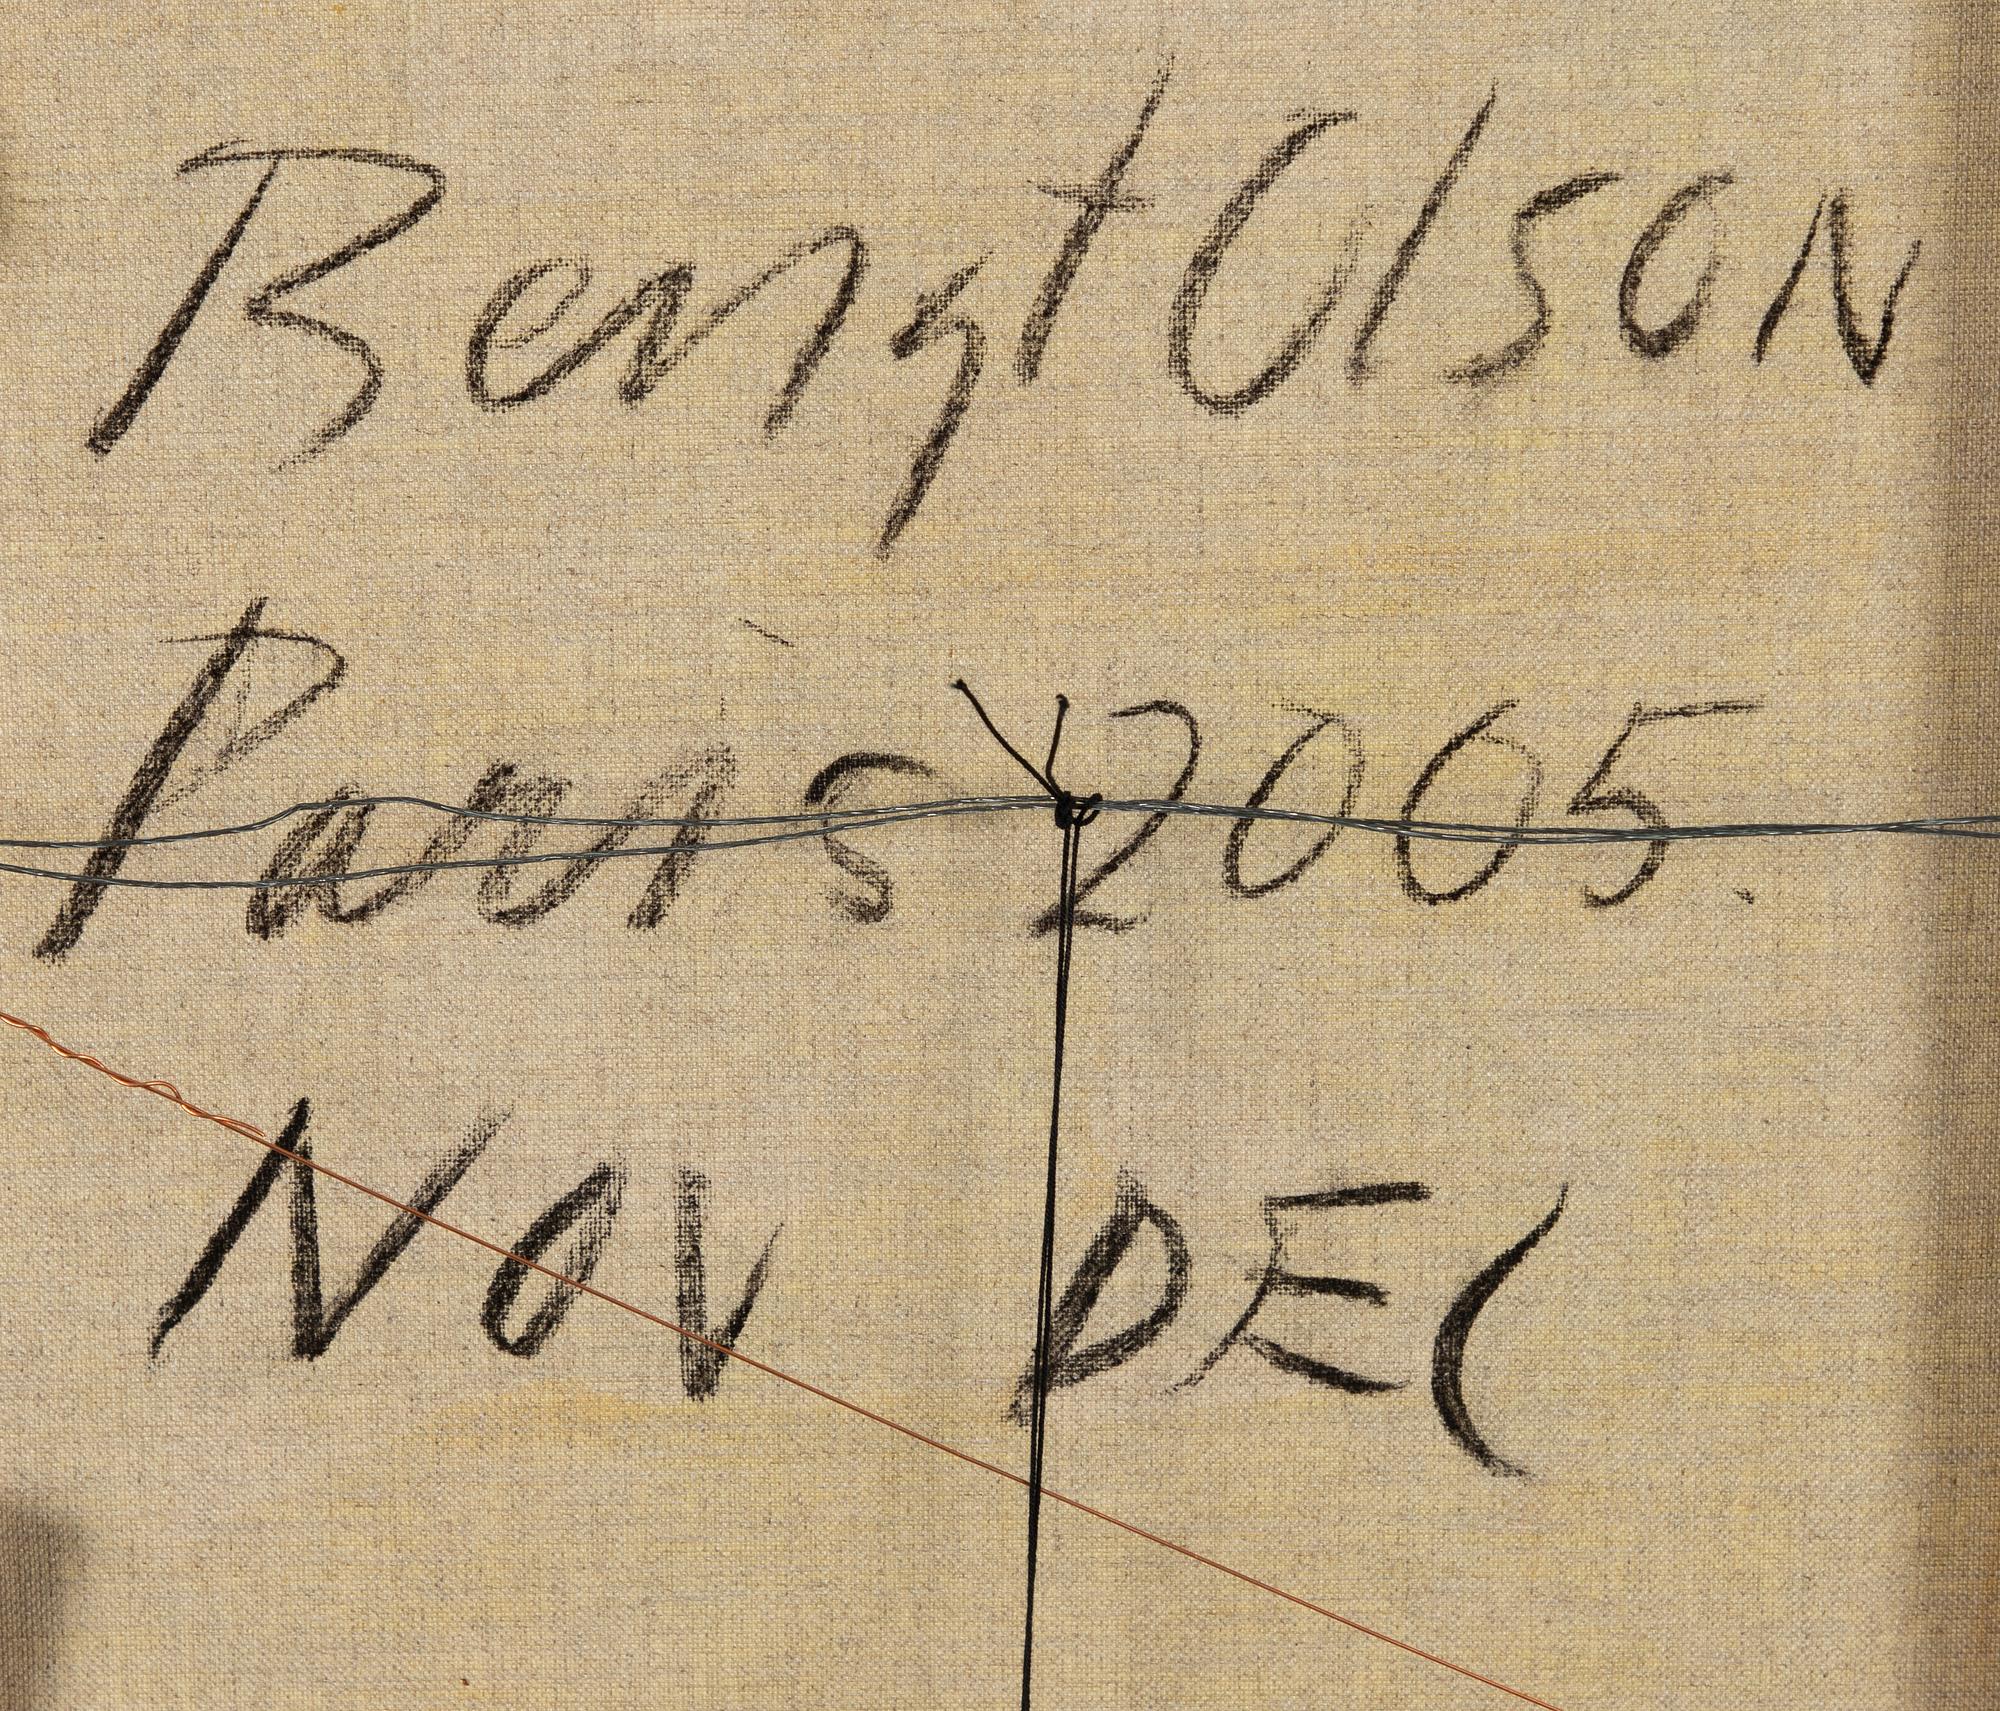 Bengt Olson
Paris 2005.
Nov DEC